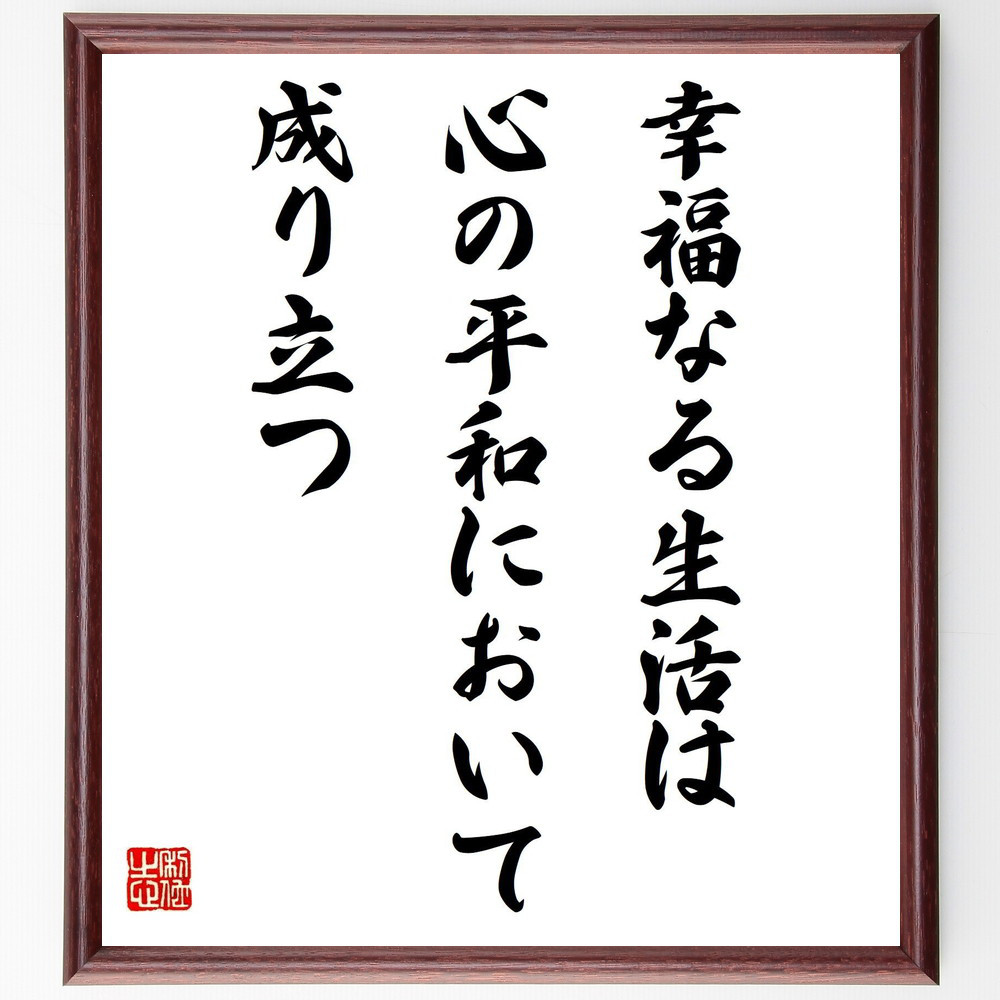 幸福なる生活は
心の平和において
成り立つ